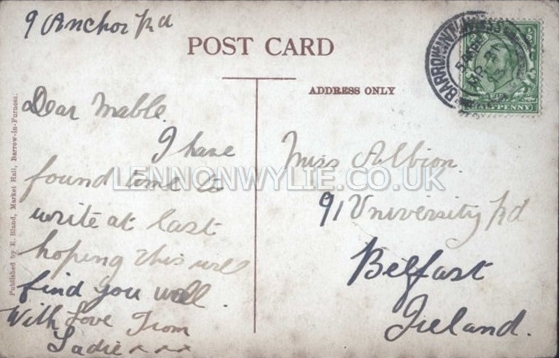 9 Anchor Rd
POST CARD
ADDRESS ONLY
Dear Mable.
I have
found time to
write at last
hoping this will
find you well.
With Love From
Sadie x x x
Miss Albion.
91 University Rd
Belfast
Ireland.
Published by E. Bland, Market Hall, Barrow-in-Furness.
BARROW-IN-FURNESS
HALFPENNY
LENNONWYLIE.CO.UK